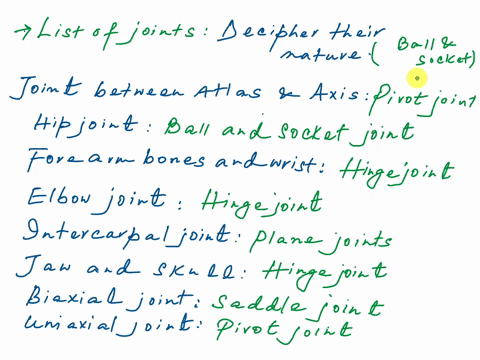 → List of joints : Decipher their nature (Ball & socket)
Joint between Atlas & Axis : Pivot joint
Hip joint : Ball and socket joint
Forearm bones and wrist : Hinge joint
Elbow joint : Hinge joint
Intercarpal joint : plane joints
Jaw and skull : Hinge joint
Biaxial joint : saddle joint
uniaxial joint : Pivot joint